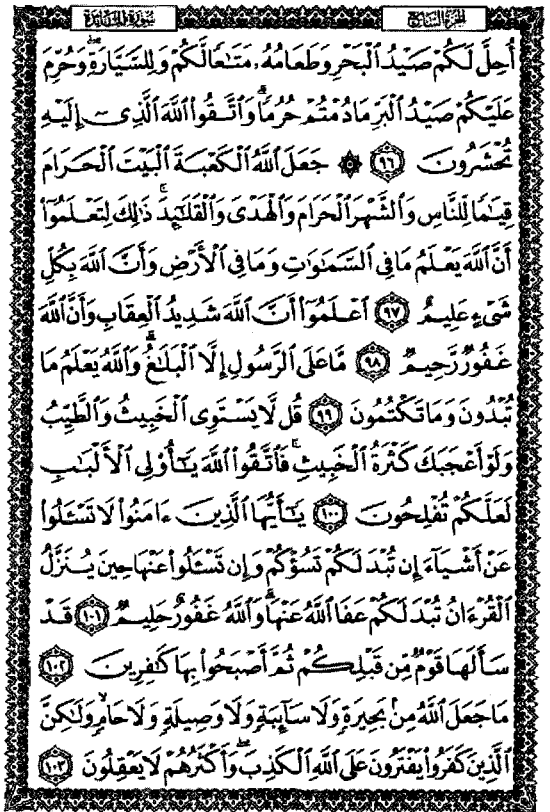 الجزء السابع
سورة المائدة
أُحِلَّ لَكُمْ صَيْدُ الْبَحْرِ وَطَعَامُهُۥ مَتَـٰعًا لَّكُمْ وَلِلسَّيَّارَةِ ۖ وَحُرِّمَ
عَلَيْكُمْ صَيْدُ الْبَرِّ مَا دُمْتُمْ حُرُمًا ۗ وَاتَّقُوا۟ اللَّهَ الَّذِىٓ إِلَيْهِ
تُحْشَرُونَ ﴿٩٦﴾ ۞ جَعَلَ اللَّهُ الْكَعْبَةَ الْبَيْتَ الْحَرَامَ
قِيَـٰمًا لِّلنَّاسِ وَالشَّهْرَ الْحَرَامَ وَالْهَدْىَ وَالْقَلَـٰٓئِدَ ۚ ذَٰلِكَ لِتَعْلَمُوٓا۟
أَنَّ اللَّهَ يَعْلَمُ مَا فِى السَّمَـٰوَٰتِ وَمَا فِى الْأَرْضِ وَأَنَّ اللَّهَ بِكُلِّ
شَىْءٍ عَلِيمٌ ﴿٩٧﴾ اعْلَمُوٓا۟ أَنَّ اللَّهَ شَدِيدُ الْعِقَابِ وَأَنَّ اللَّهَ
غَفُورٌ رَّحِيمٌ ﴿٩٨﴾ مَّا عَلَى الرَّسُولِ إِلَّا الْبَلَـٰغُ ۗ وَاللَّهُ يَعْلَمُ مَا
تُبْدُونَ وَمَا تَكْتُمُونَ ﴿٩٩﴾ قُل لَّا يَسْتَوِى الْخَبِيثُ وَالطَّيِّبُ
وَلَوْ أَعْجَبَكَ كَثْرَةُ الْخَبِيثِ ۚ فَاتَّقُوا۟ اللَّهَ يَـٰٓأُو۟لِى الْأَلْبَـٰبِ
لَعَلَّكُمْ تُفْلِحُونَ ﴿١٠٠﴾ يَـٰٓأَيُّهَا الَّذِينَ ءَامَنُوا۟ لَا تَسْـَٔلُوا۟
عَنْ أَشْيَآءَ إِن تُبْدَ لَكُمْ تَسُؤْكُمْ وَإِن تَسْـَٔلُوا۟ عَنْهَا حِينَ يُنَزَّلُ
الْقُرْءَانُ تُبْدَ لَكُمْ عَفَا اللَّهُ عَنْهَا ۗ وَاللَّهُ غَفُورٌ حَلِيمٌ ﴿١٠١﴾ قَدْ
سَأَلَهَا قَوْمٌ مِّن قَبْلِكُمْ ثُمَّ أَصْبَحُوا۟ بِهَا كَـٰفِرِينَ ﴿١٠٢﴾
مَا جَعَلَ اللَّهُ مِنۢ بَحِيرَةٍ وَلَا سَآئِبَةٍ وَلَا وَصِيلَةٍ وَلَا حَامٍ ۙ وَلَـٰكِنَّ
الَّذِينَ كَفَرُوا۟ يَفْتَرُونَ عَلَى اللَّهِ الْكَذِبَ ۖ وَأَكْثَرُهُمْ لَا يَعْقِلُونَ ﴿١٠٣﴾